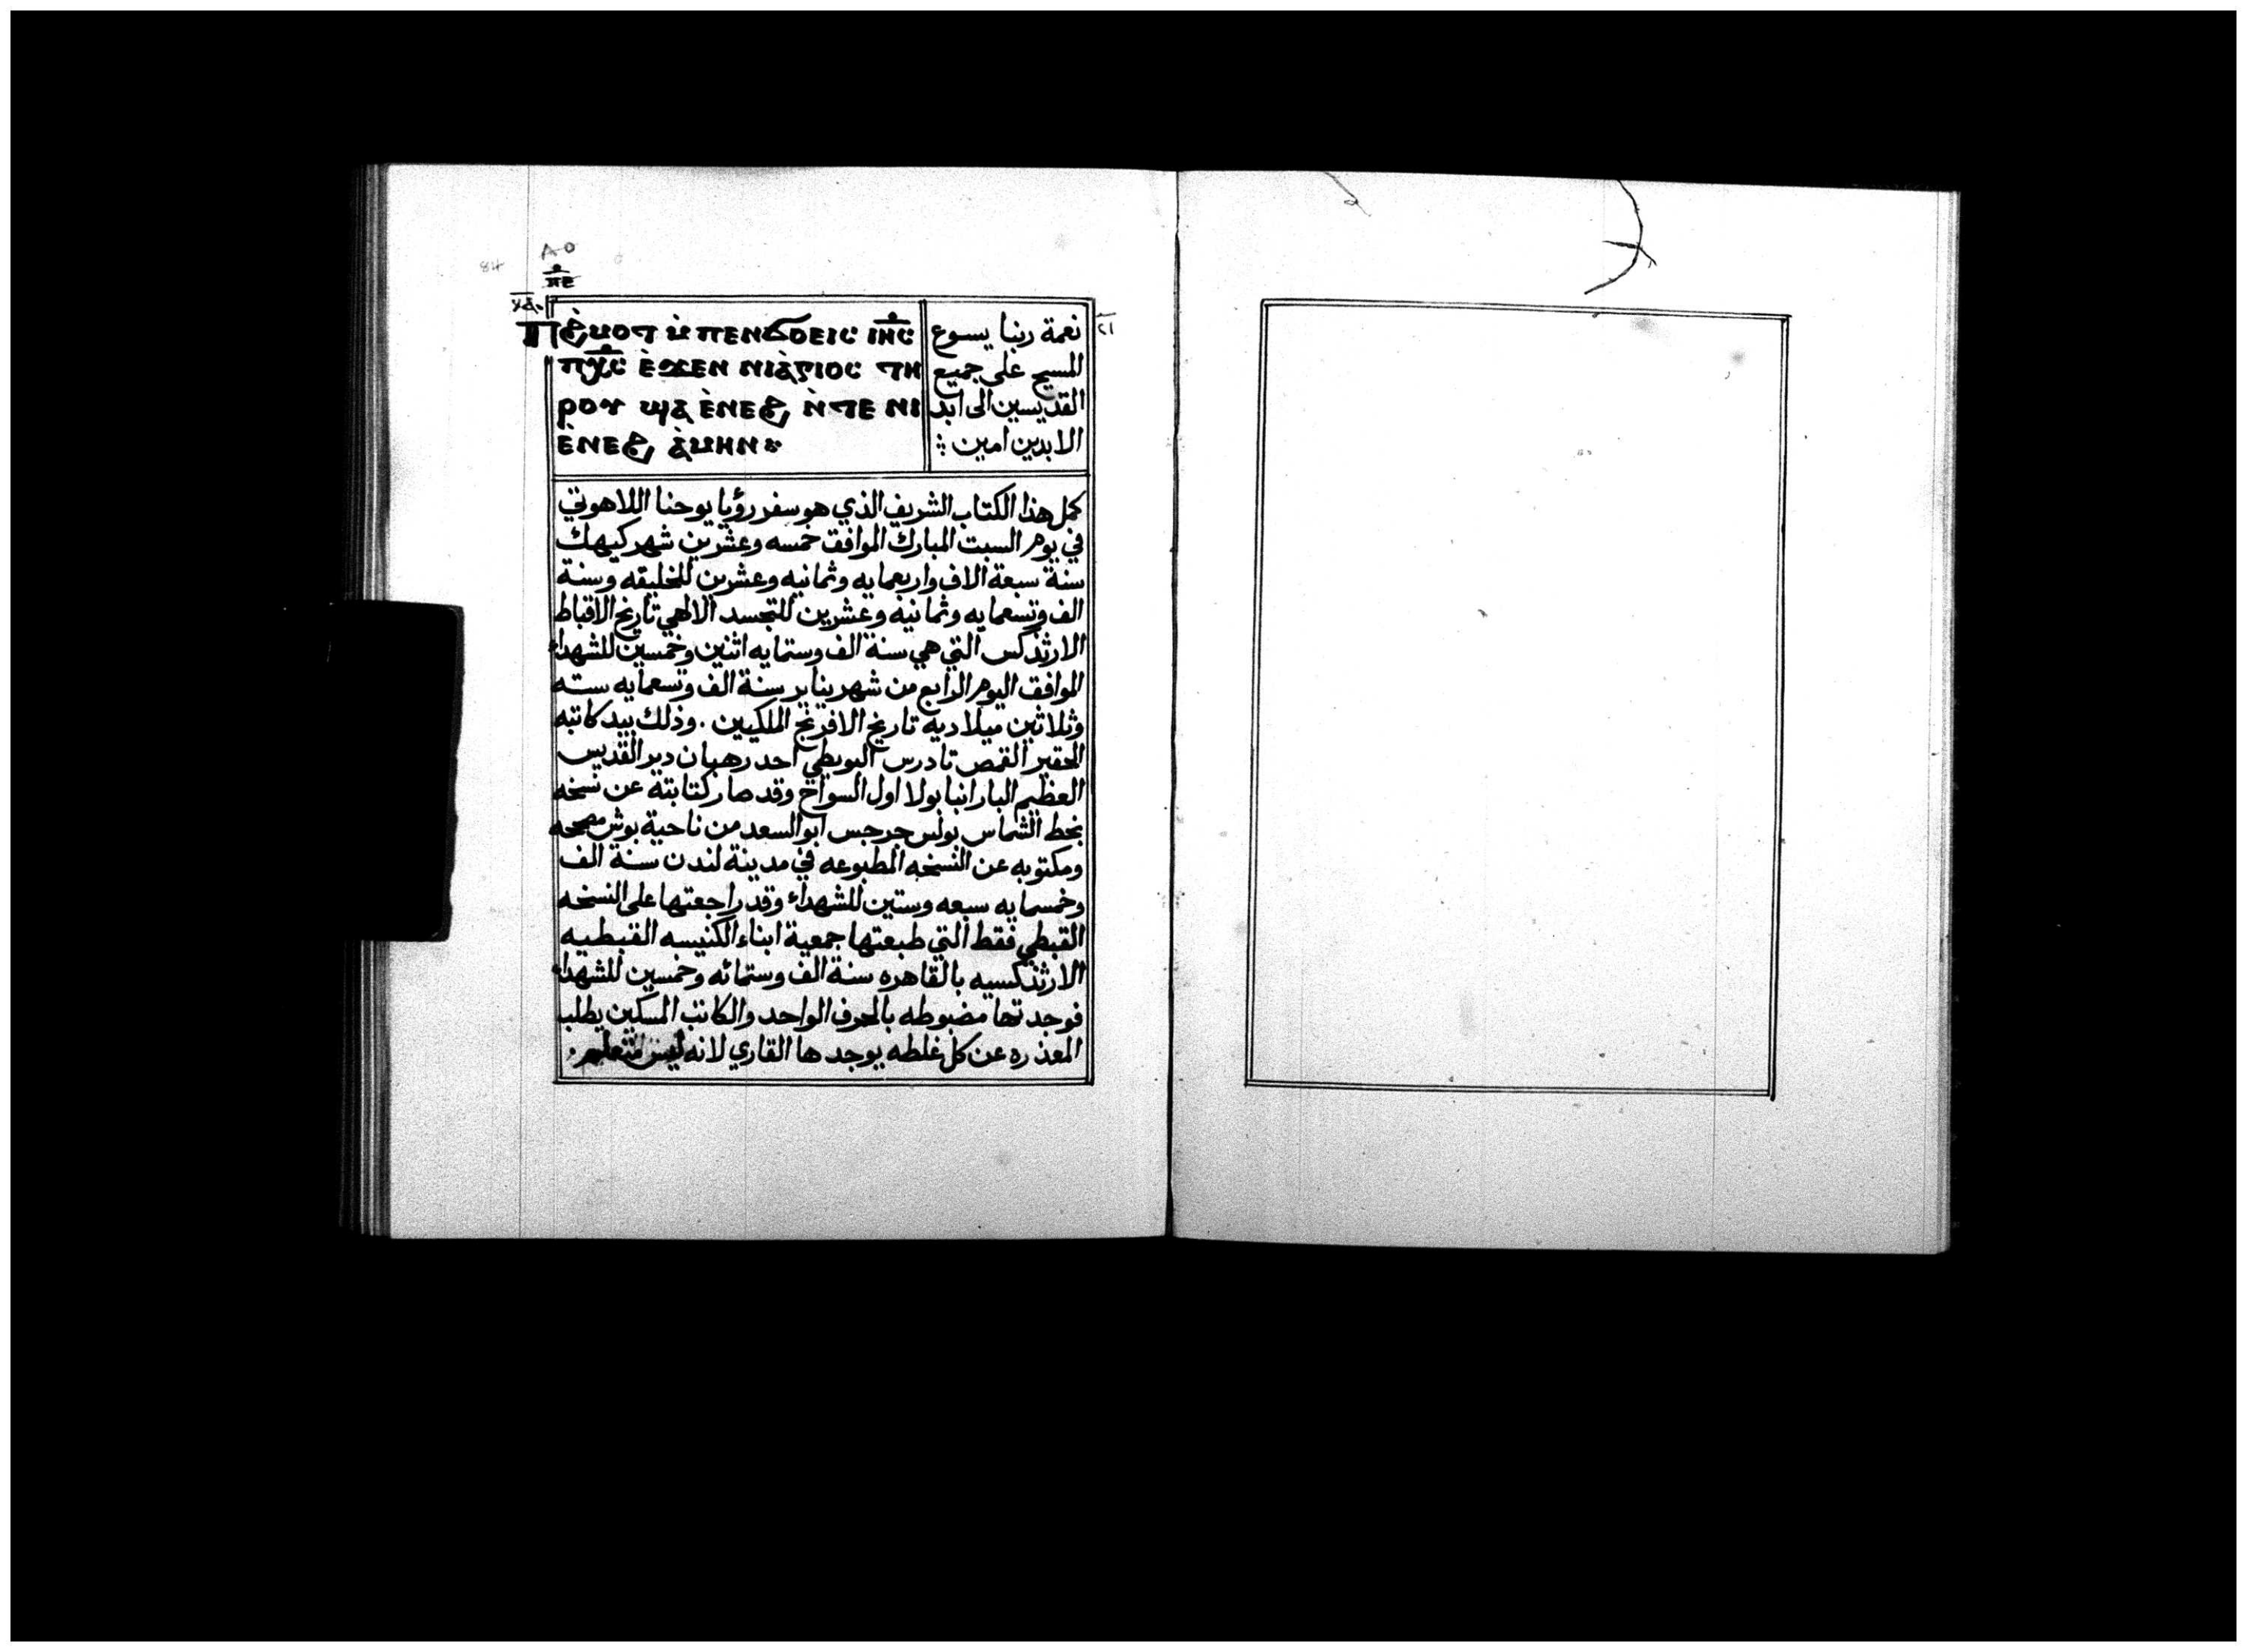 84
ⲡ̀ϩⲙⲟⲧ ⲙ̀ⲡⲉⲛϭⲟⲉⲓⲥ ⲓⲏⲥ
ⲡⲭⲥ ⲉ̀ϫⲉⲛ ⲛⲓⲁ̀ⲅⲓⲟⲥ ⲧⲏ
ⲣⲟⲩ ϣⲁ ⲉ̀ⲛⲉϩ ⲛ̀ⲧⲉ ⲛⲓ
ⲉ̀ⲛⲉϩ ⲁ̀ⲙⲏⲛ
٢١
نعمة ربنا يسوع
المسيح على جميع
القديسين الى ابد
الابدين امين
كمل هذا الكتاب الشريف الذي هو سفر رؤيا يوحنا اللاهوتي
في يوم السبت المبارك الموافق خمسه وعشرين شهر كيهك
سنة سبعة الاف واربعمايه وثمانيه وعشرين للخليقه وسنة
الف وتسعمايه وثمانية وعشرين للتجسد الالهي تاريخ الاقباط
الارثذكس التي هي سنة الف وستمايه اثنين وخمسين للشهداء
الموافق اليوم الرابع من شهر يناير سنة الف وتسعمايه سته
وثلاثين ميلادية تاريخ الافرنج الملكيين . وذلك بيد كاتبه
الحقير القمص تادرس البويطي احد رهبان دير القديس
العظيم البار انبا بولا اول السواح وقد صار كتابته عن نسخه
بخط الشماس بولس جرجس ابو السعد من ناحية بوش مصححه
ومكتوبه عن النسخه المطبوعه في مدينة لندن سنة الف
وخمسمايه سبعه وستين للشهداء وقد راجعتها على النسخه
القبطي فقط التي طبعتها جمعية ابناء الكنيسه القبطيه
الارثذكسيه بالقاهره سنة الف وستمائه وخمسين للشهداء
فوجدتها مضبوطه بالحرف الواحد والكاتب المسكين يطلب
المعذره عن كل غلطه يوجدها القاري لانه ليس متعلم .